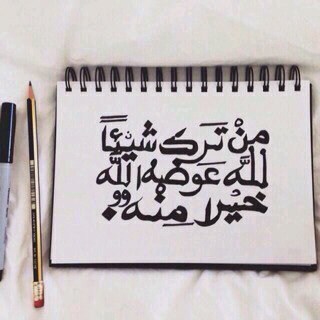 مِنْ تَرَك شيئًا
للَّه عَوضهُ اللَّه
خيْرا مِنْه